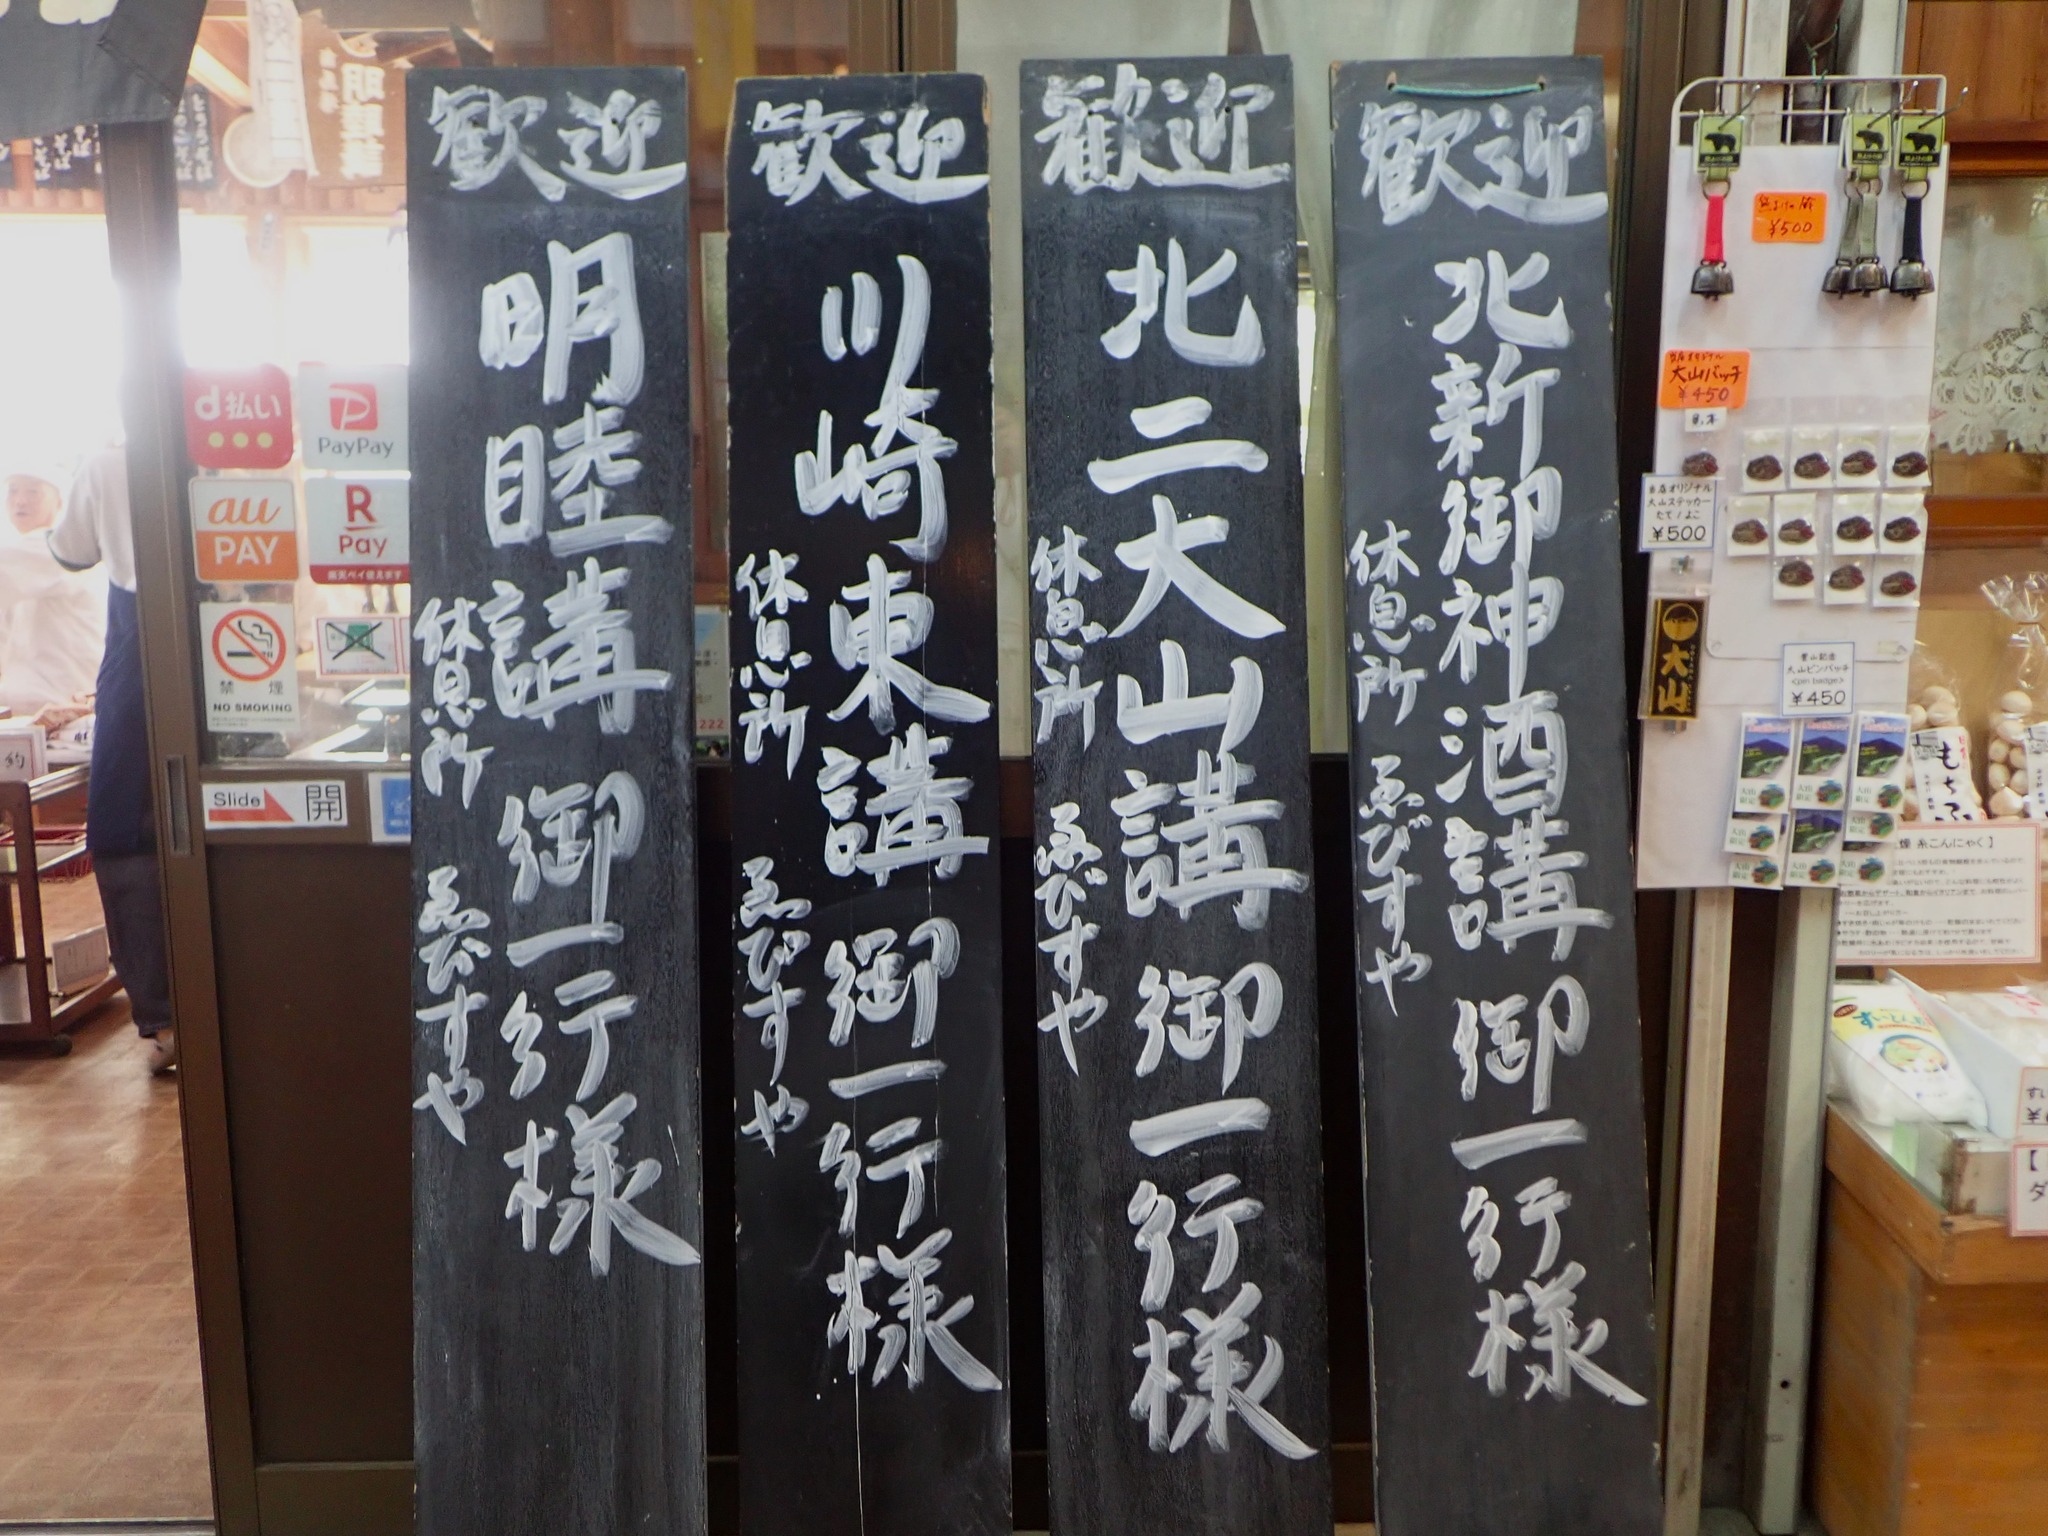 歓迎
北新御神酒講 御一行様
休息所 ゑびすや
歓迎
北二大山講 御一行様
休息所 ゑびすや
歓迎
川崎東講 御一行様
休息所 ゑびすや
歓迎
明睦講 御一行様
休息所 ゑびすや
d払い
PayPay
au
PAY
R
Pay
楽天ペイ使えます
禁煙
NO SMOKING
Slide
開
222
¥500
当店オリジナル
大山バッチ
¥450
当店オリジナル
大山ステッカー
たて/よこ
¥500
大山
登山記念
大山ピンバッチ
<pin badge>
¥450
糸こんにゃく】